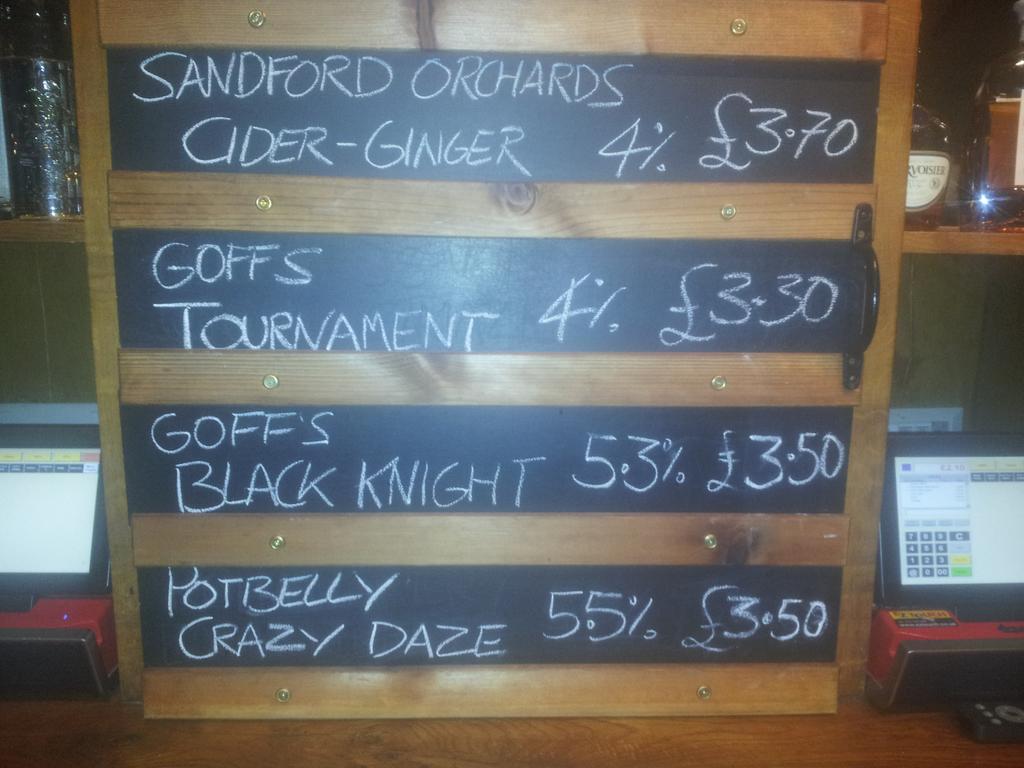 SANDFORD ORCHARDS
CIDER-GINGER 4% £3.70
GOFFS
TOURNAMENT 4% £3.30
GOFF'S
BLACK KNIGHT 5.3% £3.50
POTBELLY
CRAZY DAZE 5.5% £3.50
RVOISIER
£2.10
7 8 9 C
4 5 6
1 2 3
@ 0 00